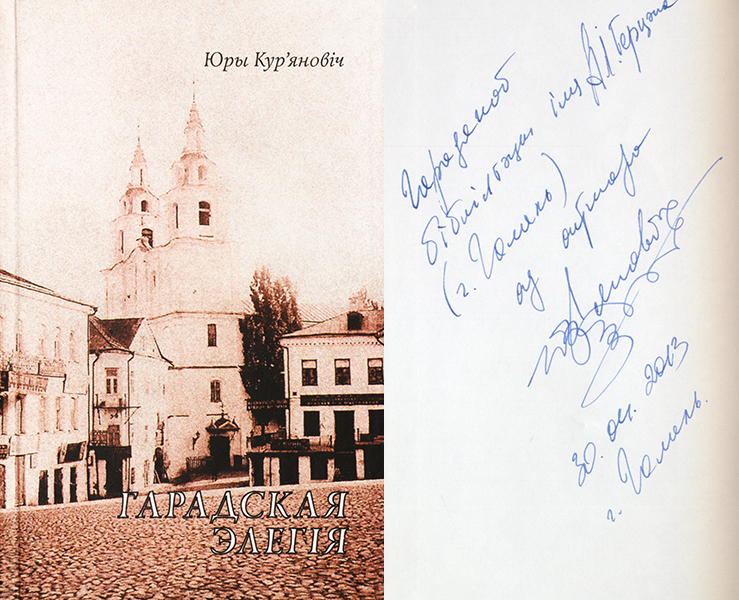 Юры Кур'яновіч
ГАРАДСКАЯ
ЭЛЕГІЯ
Гарадской
бібліятэцы імя А.І. Герцэна
(г. Гомель)
ад аўтара
30. 04. 2013
г. Гомель.